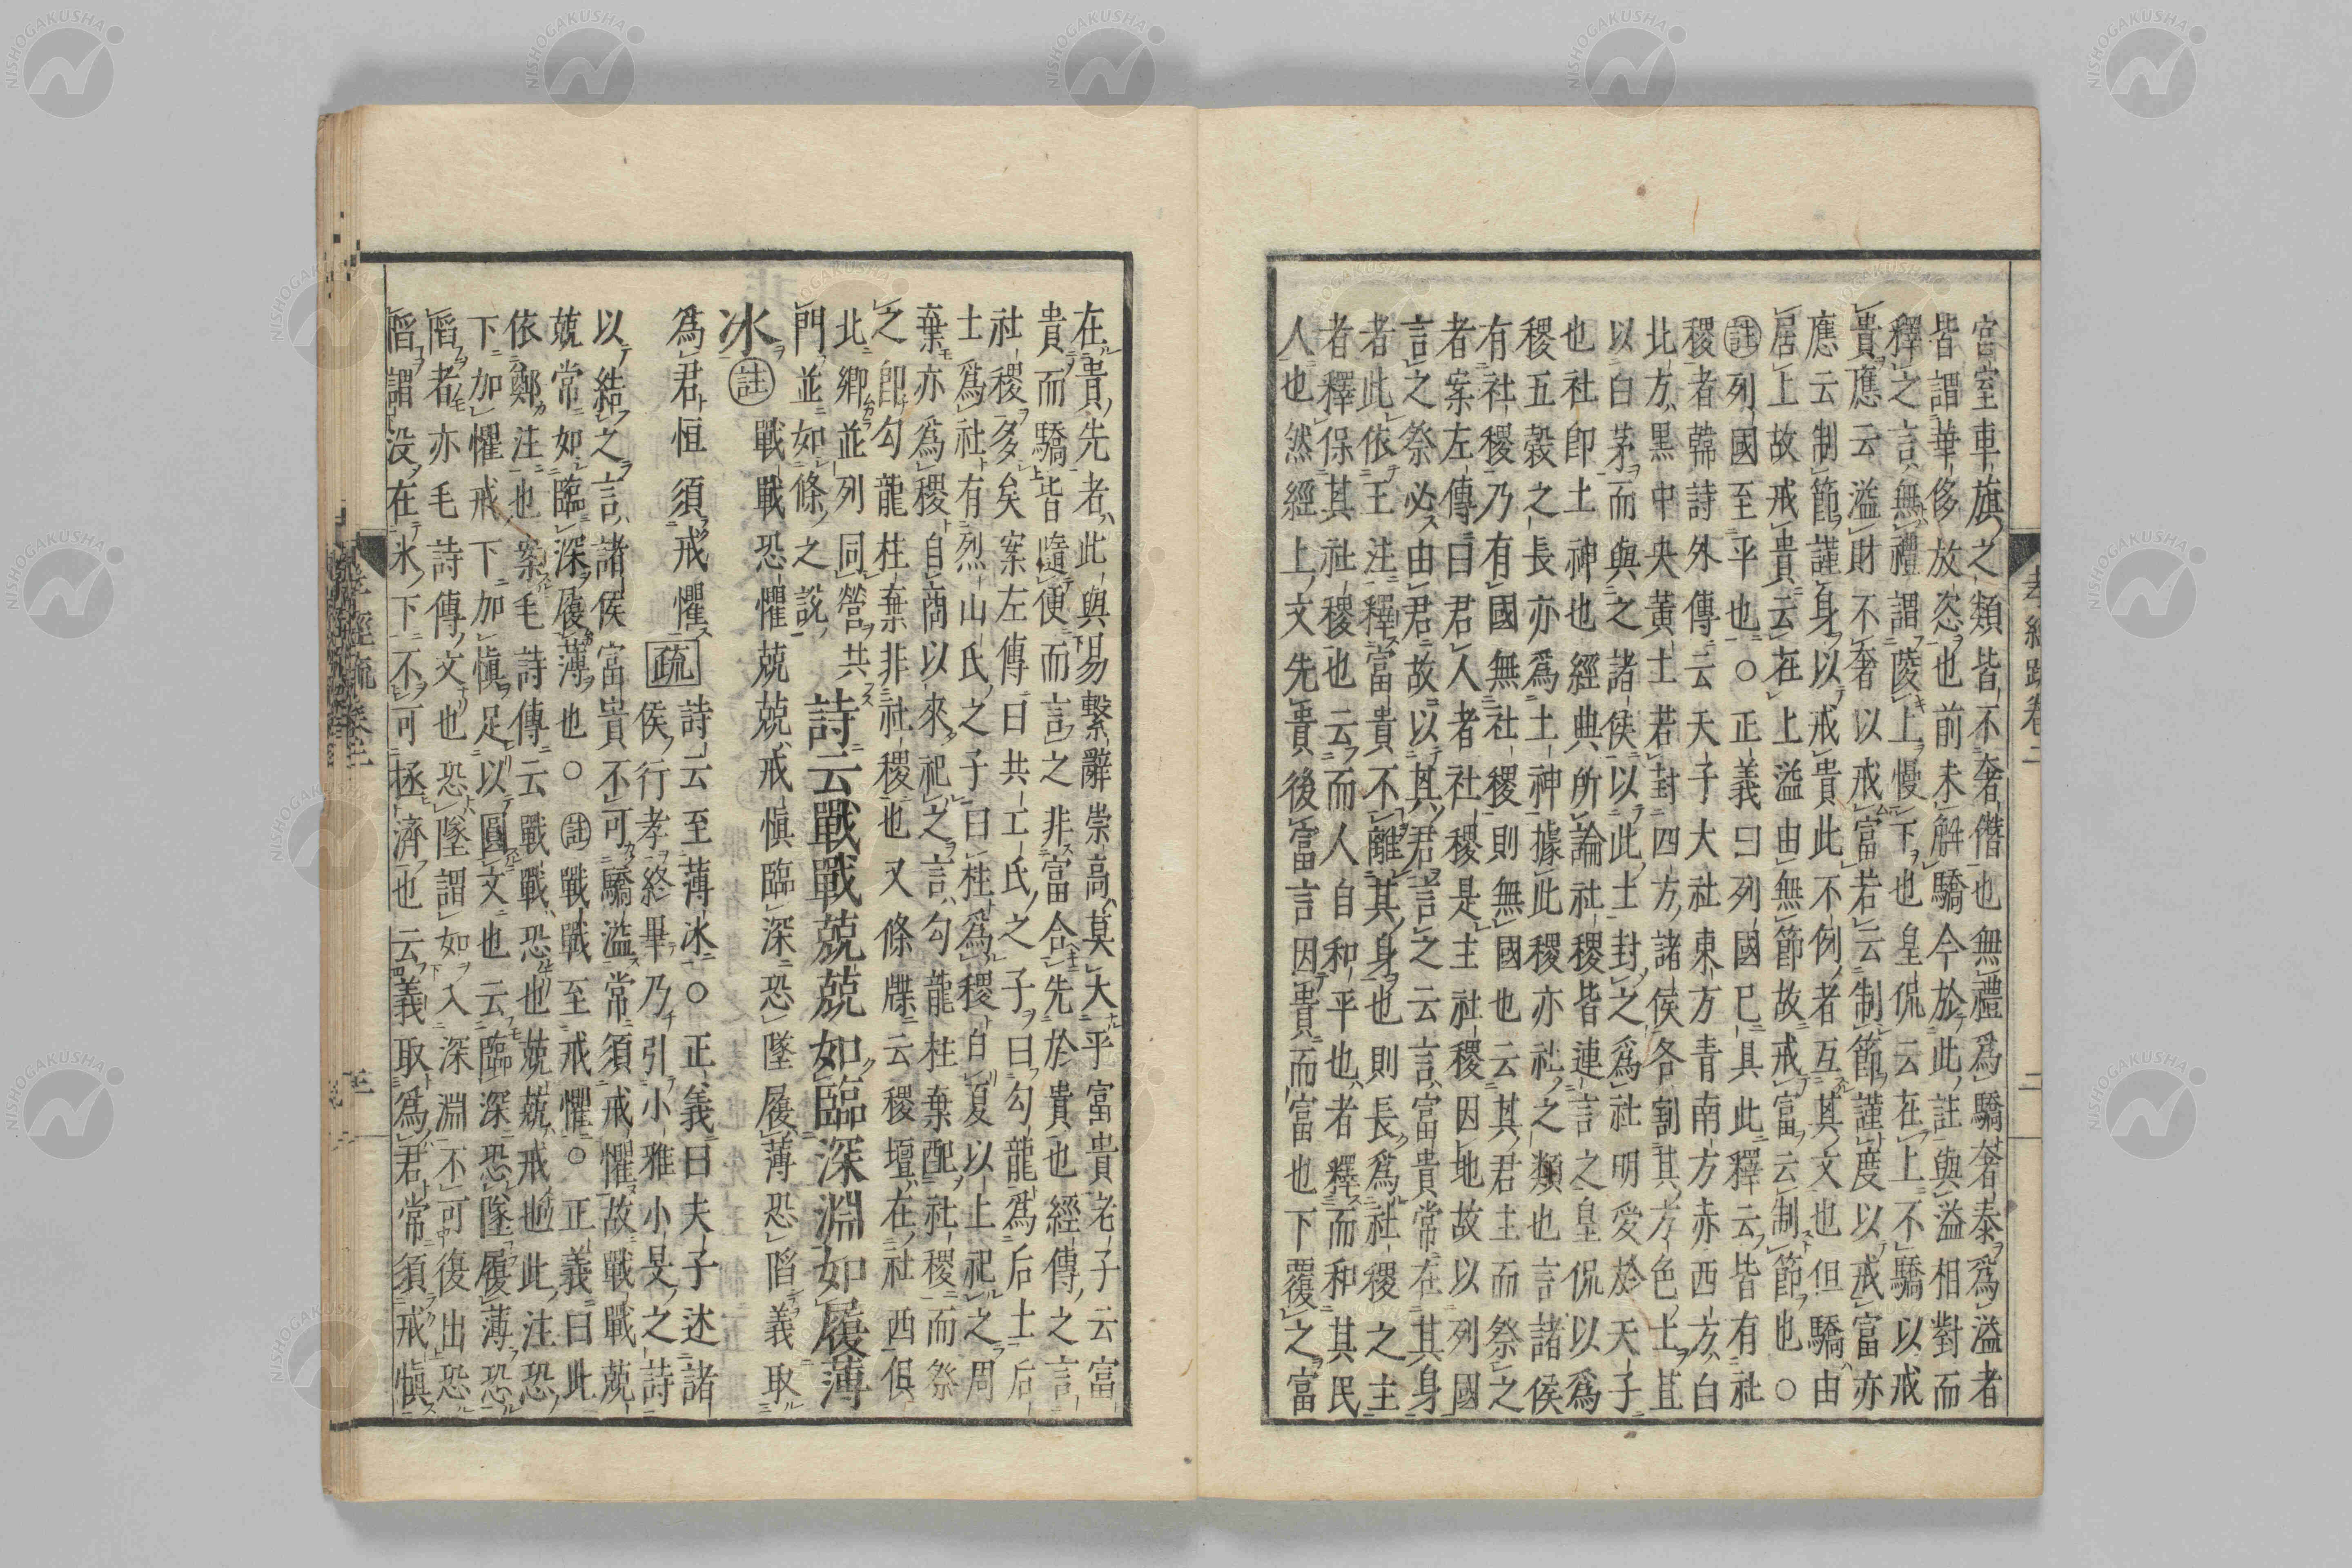 宮室車旗之類皆不奢僣也無禮爲驕奢泰爲溢者
皆謂華侈放恣也前未觧驕今於此註與溢相對而
釋之言無禮謂陵上慢下也皇侃云在上不驕以戒
貴應云溢財不奢以戒富若云制節謹度以戒富亦
應云制節謹身以戒貴此不例者互其文也但驕由
居上故戒貴云在上溢由無節故戒富云制節也○
註列國至平也○正義曰列國巳具此釋云皆有社
稷者韓詩外傳云天子大社東方青南方赤西方白
北方黒中央黃土若封四方諸侯各割其方色土苴
以白茅而與之諸侯以此土封之爲社明愛於天子
也社卽土神也經典所論社稷皆連言之皇侃以爲
稷五穀之長亦爲土神據此稷亦社之類也言諸侯
有社稷乃有國無社稷則無國也云其君主而祭之
者案左傳曰君人者社稷是主社稷因地故以列國
言之祭必由君故以其君言之云言富貴常在其身
者此依王注釋富貴不離其身也則長爲社稷之主
者釋保其社稷也云而人自和平也者釋而和其民
人也然經上文先貴後富言因貴而富也下覆之富
在貴先者此與易繫辭崇高莫大乎富貴老子云富
貴而驕皆隨便而言之非富合先於貴也經傳之言
社稷多矣案左傳曰共工氏之子曰勾龍爲后土后
土爲社有烈山氏之子曰柱爲稷自夏以上祀之周
棄亦爲稷自商以來祀之言勾龍柱棄配社稷而祭
之卽勾龍柱棄非社稷也又條牒云稷壇在社西俱
北鄉並列同營共門並如條之說
詩云戰戰兢兢如臨深淵如履薄
冰 註 戰戰恐懼兢兢戒愼臨深恐墜履薄恐䧟義取
爲君恒須戒懼 疏 詩云至薄冰○正義曰夫子述諸
侯行孝終畢乃引小雅小旻之詩
以結之言諸侯富貴不可驕溢常須戒懼故戰戰兢
兢常如臨深履薄也○註戰戰至戒懼○正義曰此
依鄭注也案毛詩傳云戰戰恐也兢兢戒也此注恐
下加懼戒下加愼足以圓文也云臨深恐墜履薄恐
䧟者亦毛詩傳文也恐墜謂如入深淵不可復出恐
䧟謂没在氷下不可拯濟也云義取爲君常須戒愼
孝經疏卷二
二